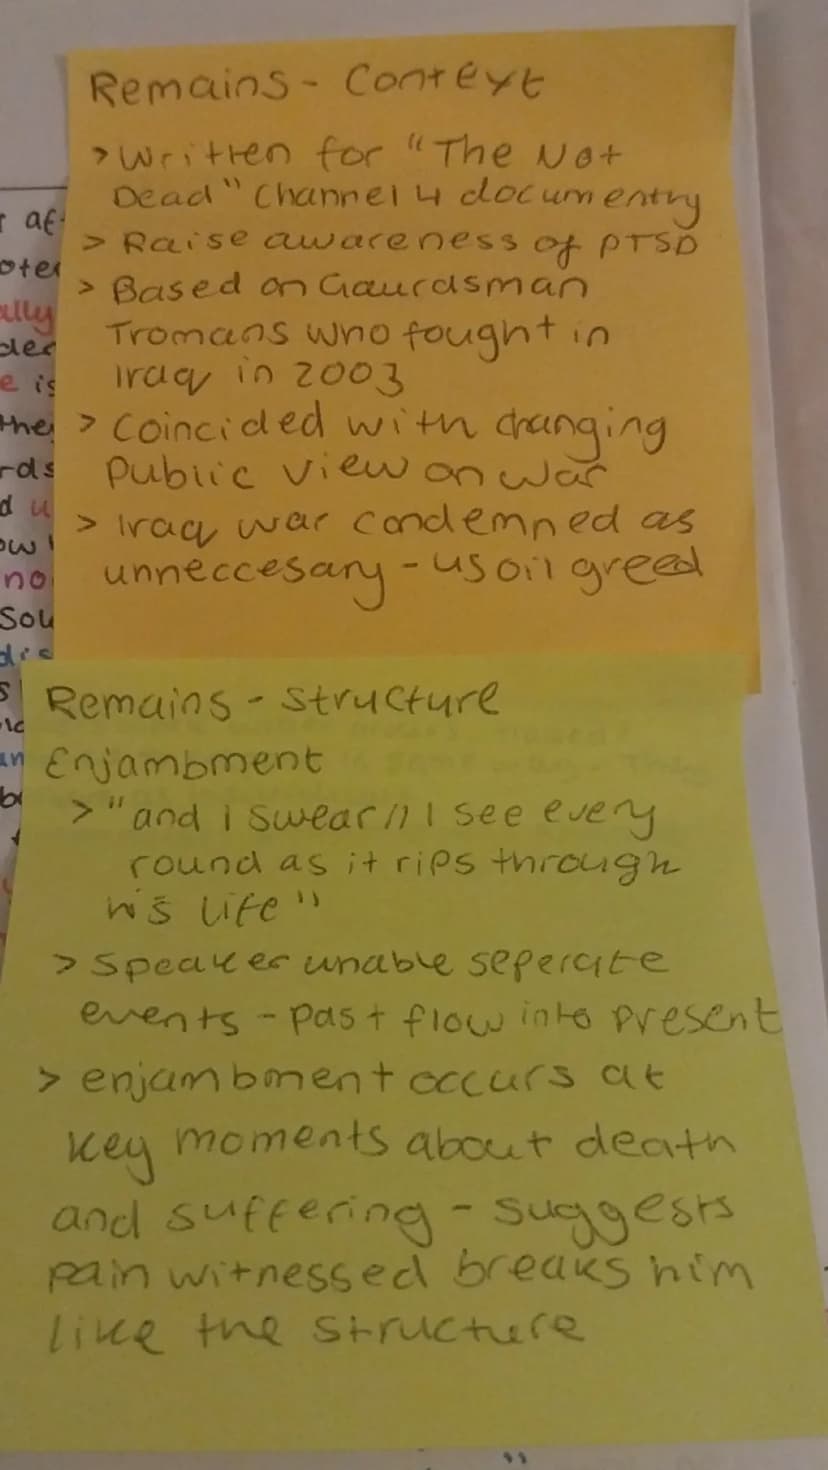 Remains - Context
> Written for "The Not
Dead" Channel 4 documentry
> Raise awareness of PTSD
> Based on Gaurdsman
Tromans who fought in
Iraq in 2003
> Coincided with changing
Public view on war
> Iraq war condemned as
unneccesary - us oil greed
Remains - structure
Enjambment
> "and i swear // I see every
round as it rips through
his life"
> Speaker unable seperate
events - past flow into present
> enjambment occurs at
key moments about death
and suffering - suggests
pain witnessed breaks him
like the structure